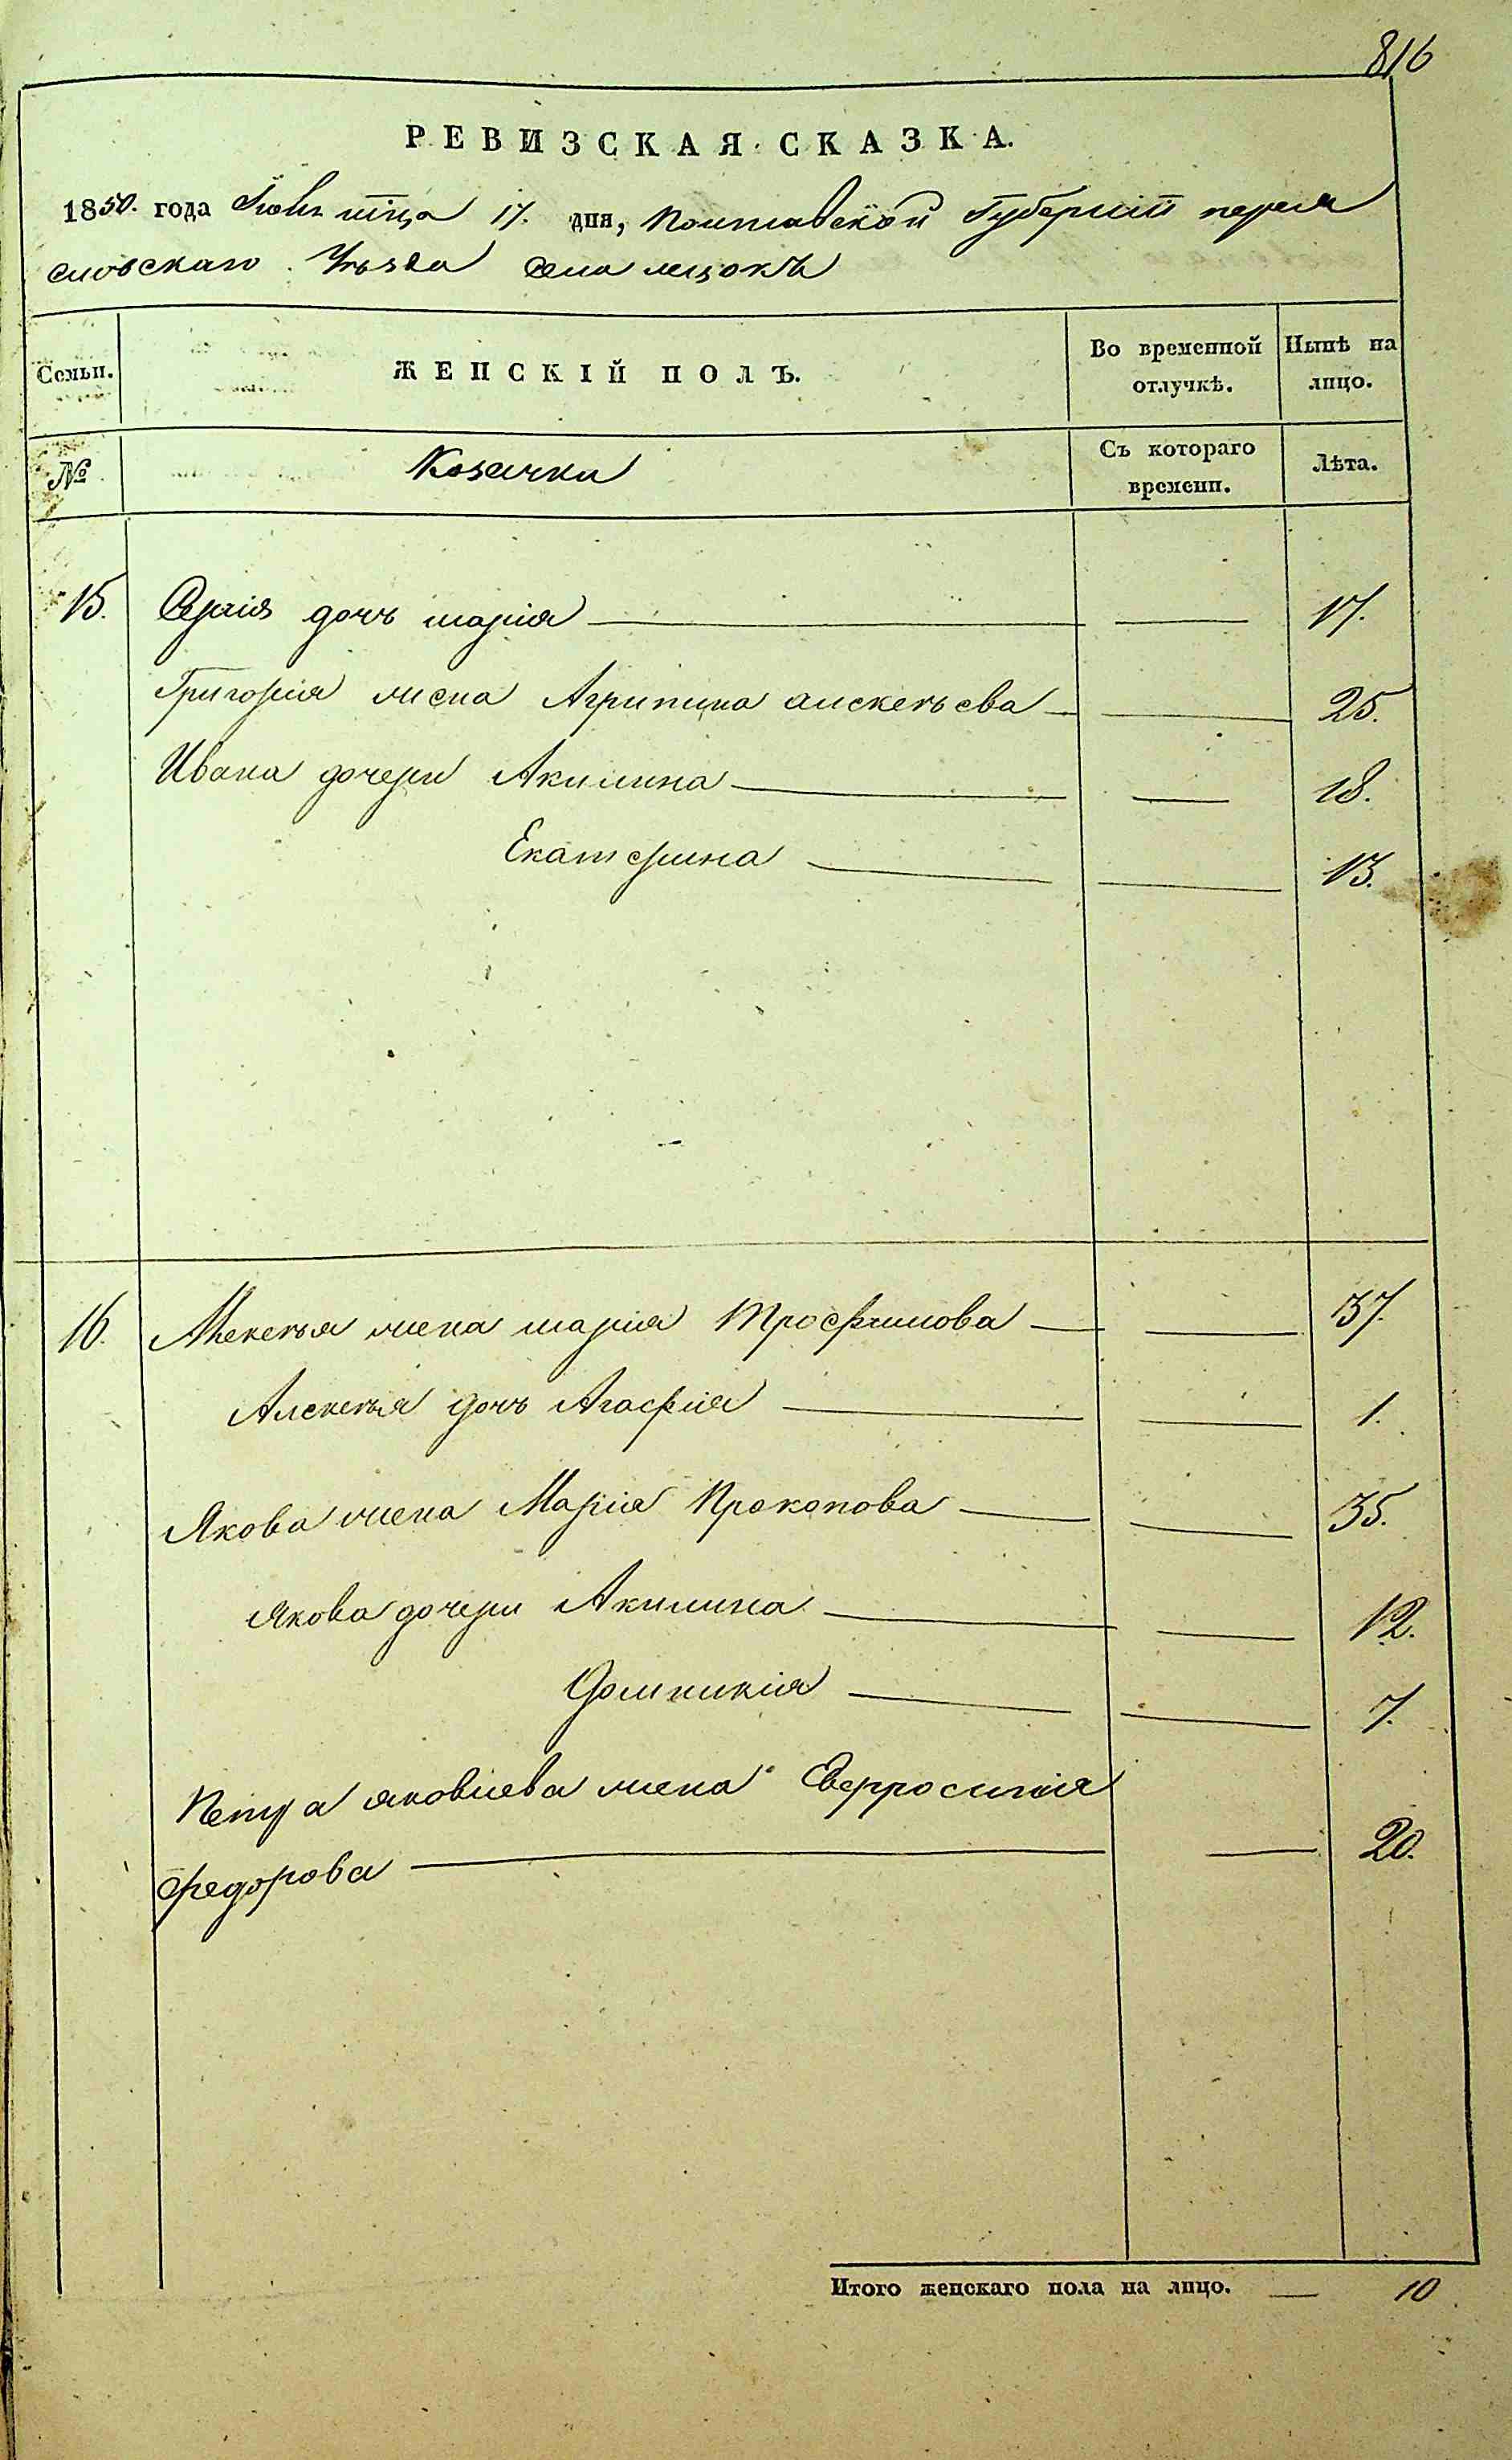 816
РЕВИЗСКАЯ СКАЗКА.
1850. года мца 17. дня, Полтавской Губернiи перея
словскаго Уѣзда Села
Семьи. ЖЕНСКІЙ ПОЛЪ. Во временной отлучкѣ. Нынѣ на лицо.
№ Козачки Съ котораго времени. Лѣта.
15. дочь марія — — 17.
Григорія жена Агрипина алексѣева — — 25.
Ивана дочери Акилина — — 18.
Екатерина — — 13.
16. жена марія Трофимова — — 37.
Алексѣя дочь Агафія — — 1.
Якова жена Марія Прокопова — — 35.
Якова дочери Акилина — — 12.
Домникія — — 7.
Петра яковлева жена Евфросинія
Федорова — — 20.
Итого женскаго пола на лицо. — 10